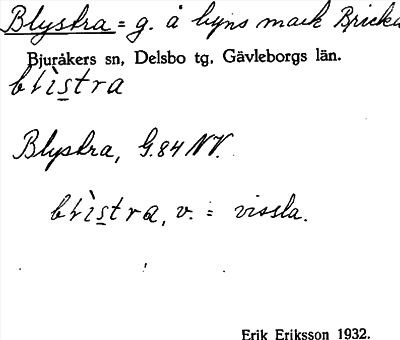 Blystra = g. å byns mark Bricka
Bjuråkers sn, Delsbo tg, Gävleborgs län.
blìstra
Blystra, G. 84 NV.
blìstra, v. = vissla.
Erik Eriksson 1932.